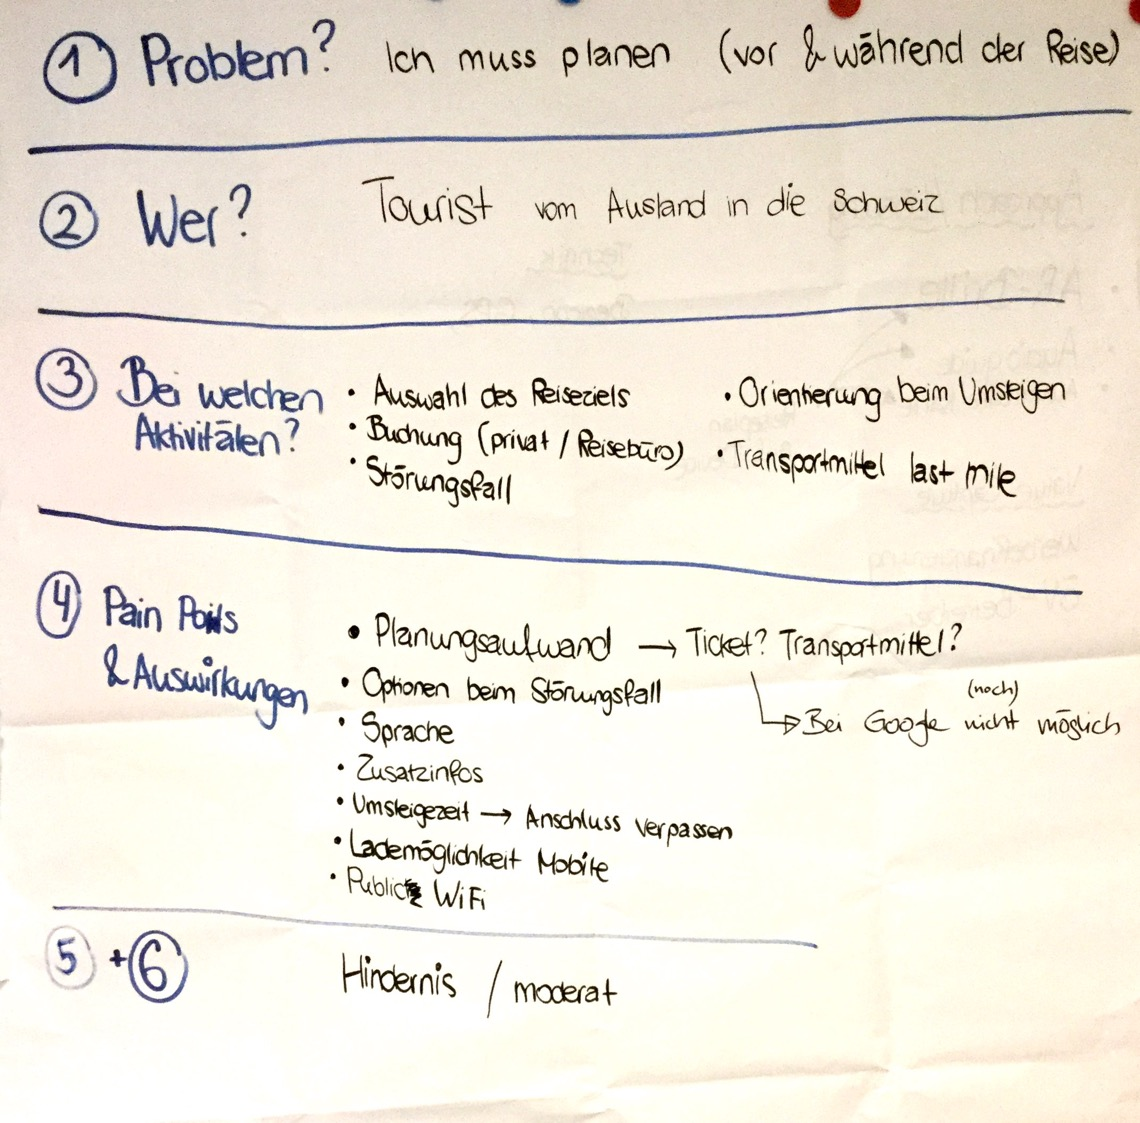 1 Problem? Ich muss planen (vor & während der Reise)
2 Wer? Tourist vom Ausland in die Schweiz
3 Bei welchen Aktivitäten?
• Auswahl des Reiseziels
• Buchung (privat / Reisebüro)
• Störungsfall
• Orientierung beim Umsteigen
• Transportmittel last mile
4 Pain Points
& Auswirkungen
• Planungsaufwand → Ticket? Transportmittel?
↳ Bei Google (noch) nicht möglich
• Optionen beim Störungsfall
• Sprache
• Zusatzinfos
• Umsteigezeit → Anschluss verpassen
• Lademöglichkeit Mobile
• Public WiFi
5 + 6 Hindernis / moderat